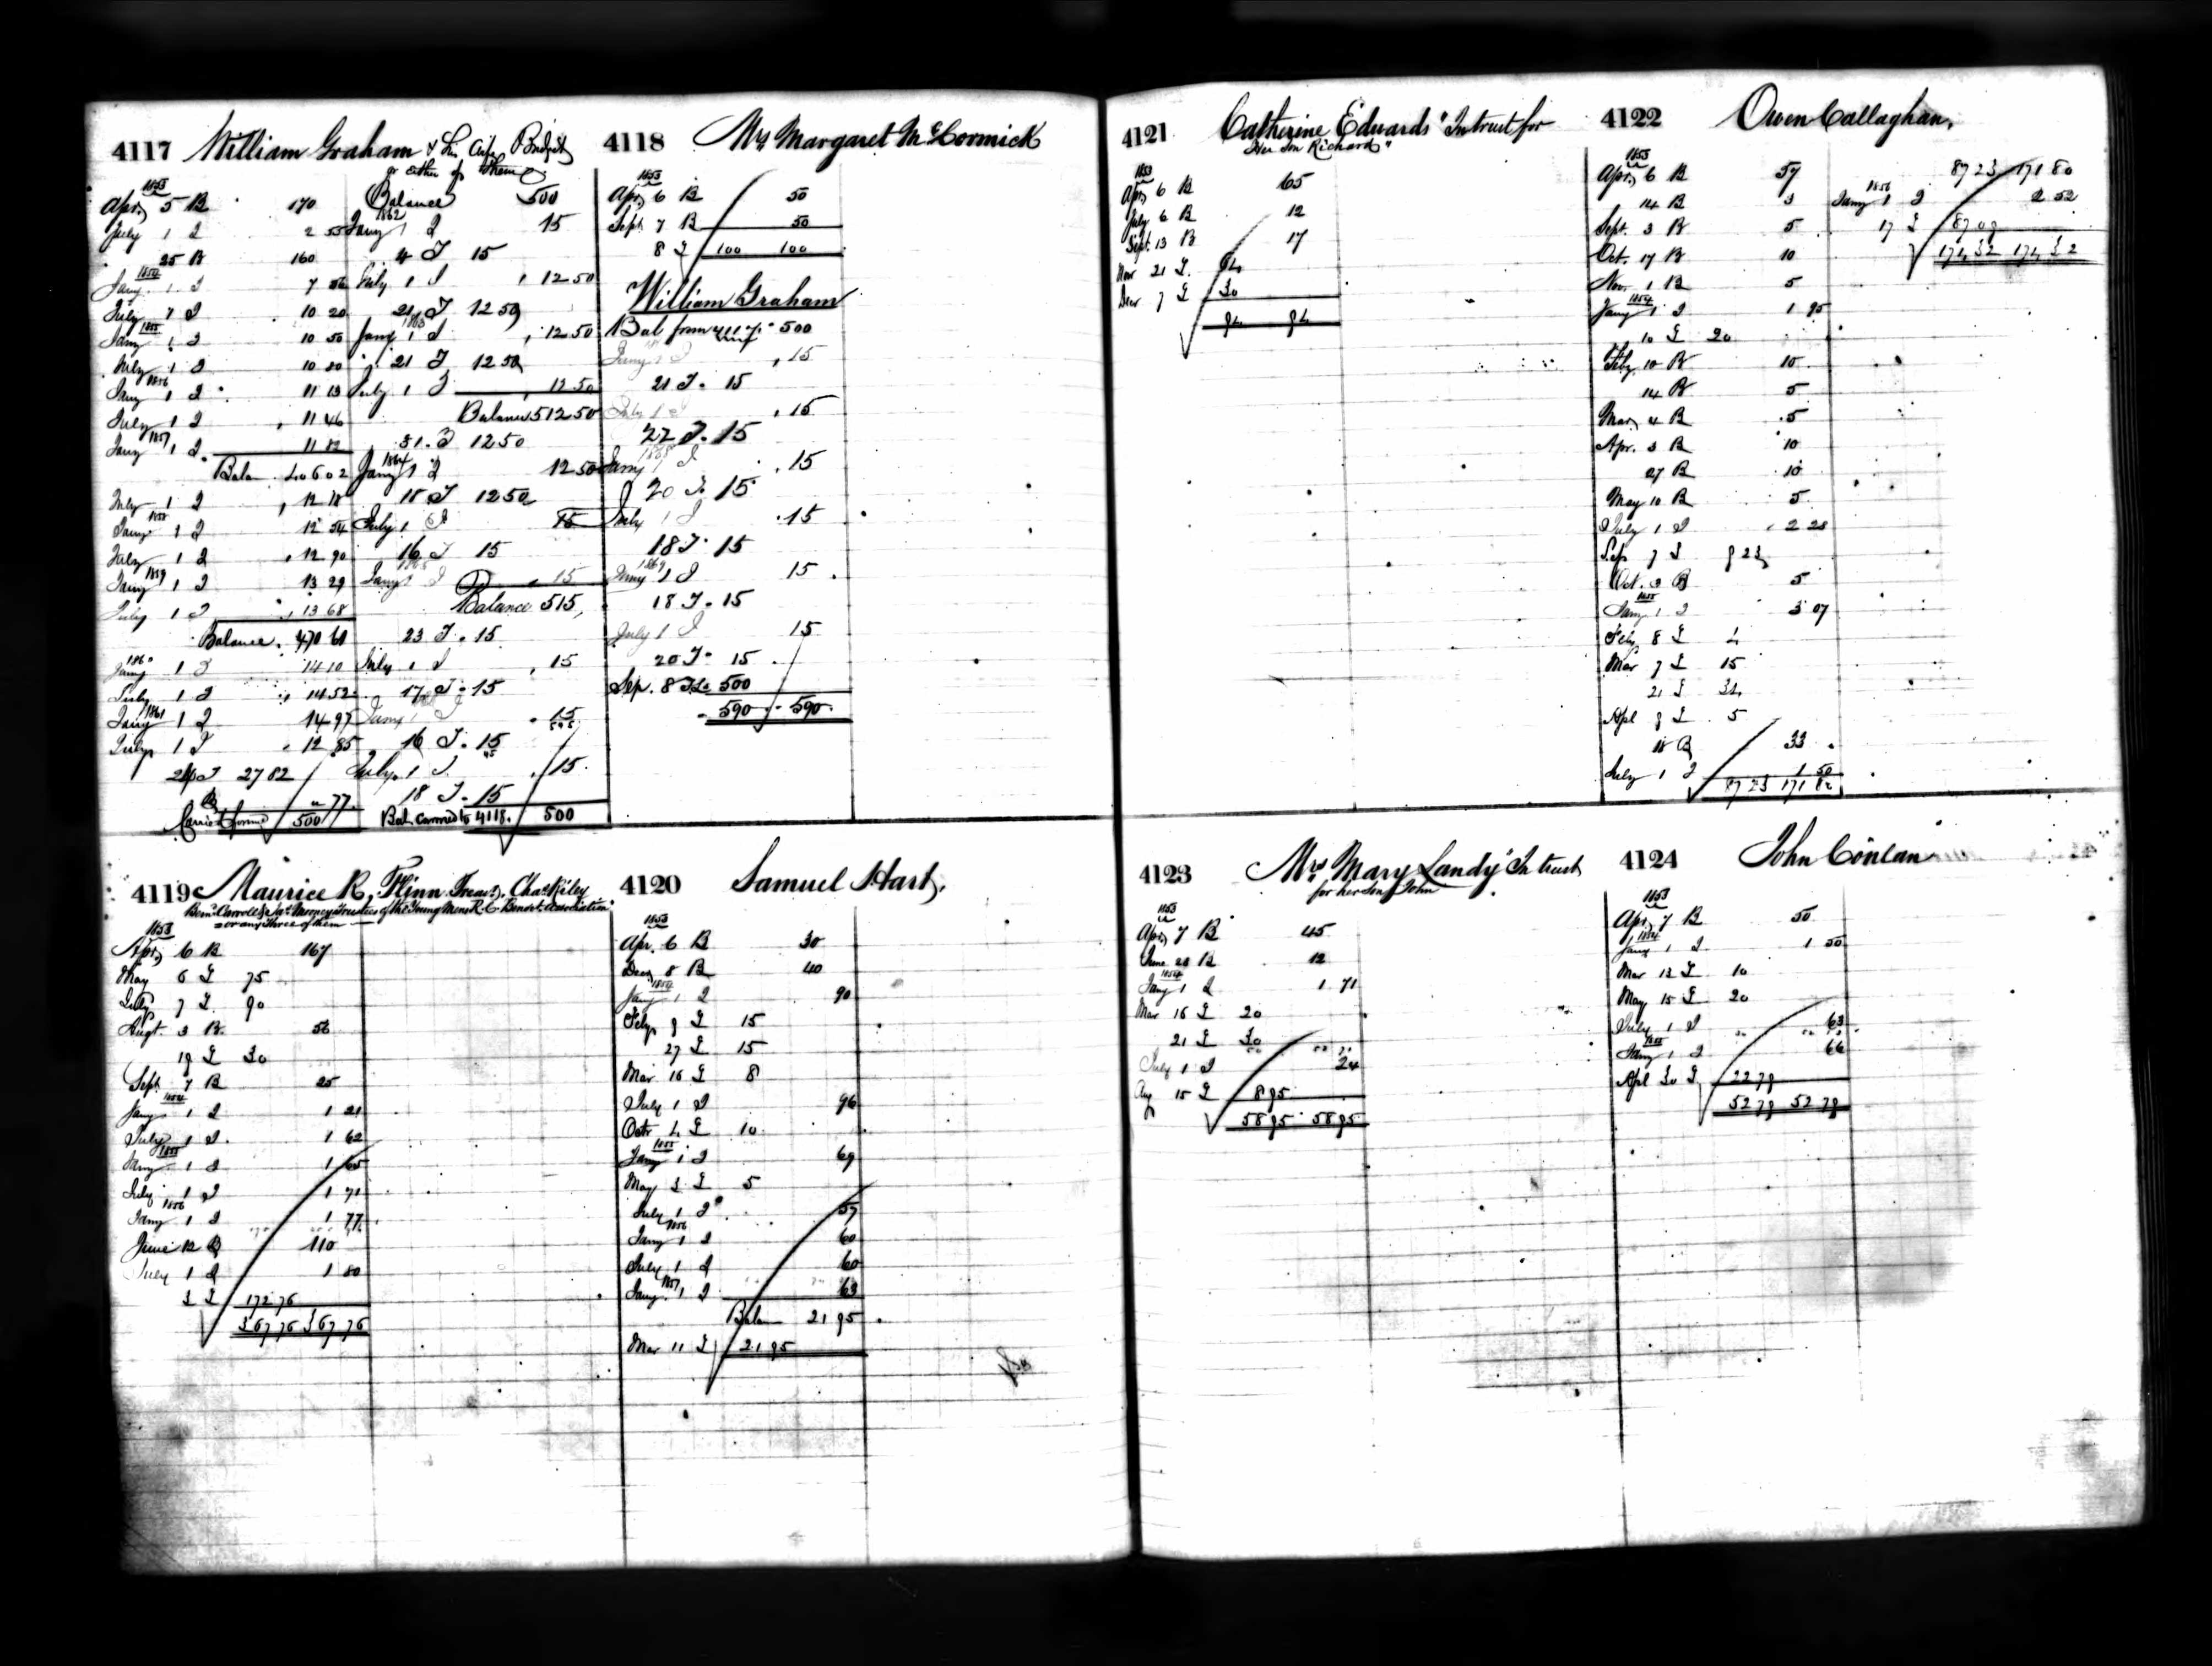 4117 William Graham & his wife Bridget
or either of them
1853
Apr. 5 B 170
July 1 I 2 55
25 B 160
1854
Jany 1 I 7 56
July 1 I 10 20
1855
Jany 1 I 10 50
July 1 I 10 80
1856
Jany 1 I 11 13
July 1 I 11 46
1857
Jany 1 I 11 82
Balan 406 02
July 1 I 12 18
1858
Jany 1 I 12 54
July 1 I 12 90
1859
Jany 1 I 13 29
July 1 I 13 68
Balance 470 61
1860
Jany 1 I 14 10
July 1 I 14 52
1861
Jany 1 I 14 97
July 1 I 12 85
27 82
77
Carried forwd 500
Balance 500
1862
Jany 1 I 15
4 T 15
July 1 I 12 50
21 T 12 50
1863
Jany 1 I 12 50
21 T 12 50
July 1 I 12 50
Balance 512 50
31 T 12 50
1864
Jany 1 I 12 50
18 T 12 50
July 1 I 15
16 T 15
1865
Jany 1 I 15
Balance 515
23 T 15
July 1 I 15
17 T 15
Jany 1 I 15
16 T 15
July 1 I 15
18 T 15
Bal. carried to 4118. 500
4118 Mrs Margaret McCormick
1853
Apr. 6 B 50
Sept. 7 B 50
8 T 100 100
William Graham
Bal from 4117 500
Jany 1 I 15
21 T 15
July 1 I 15
22 T 15
1868
Jany 1 I 15
20 T 15
July 1 I 15
18 T 15
1869
Jany 1 I 15
18 T 15
July 1 I 15
20 T 15
Sep. 8 T 500
590 590
4119 Maurice R. Flinn Treasr, Chas Riley
Bernd Carroll & Jas Mooney Trustees of the Young Mens R.C. Benevt Association
or any three of them
1853
Apr. 6 B 167
May 6 T 75
July 7 T 90
Augt. 3 B 56
19 T 30
Sept 7 B 25
1854
Jany 1 I 1 21
July 1 I 1 62
1855
Jany 1 I 1 65
July 1 I 1 71
1856
Jany 1 I 1 77
June 12 B 110
July 1 I 1 80
3 T 172 76
367 76 367 76
4120 Samuel Hart,
1853
Apr. 6 B 30
Decr 8 B 40
1854
Jany 1 I 90
Feby 9 T 15
27 T 15
Mar 16 T 8
July 1 I 96
Octr 4 T 10
1855
Jany 1 I 69
May 3 T 5
July 1 I 57
1856
Jany 1 I 60
July 1 I 60
1857
Jany 1 I 63
Balan 21 95
Mar 11 T 21 95
4121 Catherine Edwards "In trust for
Her Son Richard"
1853
Apr. 6 B 65
July 6 B 12
Sept. 13 B 17
Nov 21 T 64
Decr 7 T 30
94 94
4122 Owen Callaghan,
1853
Apr. 6 B 57
14 B 3
Sept. 3 B 5
Oct. 17 B 10
Nov. 1 B 5
1854
Jany 1 I 1 95
10 T 20
Feby 10 B 10
14 B 5
Mar. 4 B 5
Apr. 3 B 10
27 B 10
May 10 B 5
July 1 I 2 28
Sep 7 T 9 23
Oct. 3 B 5
1855
Jany 1 I 3 07
Feby 8 T 4
Mar 7 T 15
21 T 34
Apl 9 T 5
18 B 33
July 1 I 1 50
87 23 171 80
87 23 171 80
1856
Jany 1 I 2 52
17 T 87 09
174 32 174 32
4123 Mrs Mary Landy "In trust
for her Son John"
1853
Apr. 7 B 45
June 20 B 12
1854
Jany 1 I 1 71
Mar 16 T 20
21 T 30
July 1 I 24
Aug 15 T 8 95
58 95 58 95
4124 John Conlan
1853
Apr. 7 B 50
1854
Jany 1 I 1 50
Mar 13 T 10
May 15 T 20
July 1 I 63
1855
Jany 1 I 66
Apl 30 T 22 79
52 79 52 79